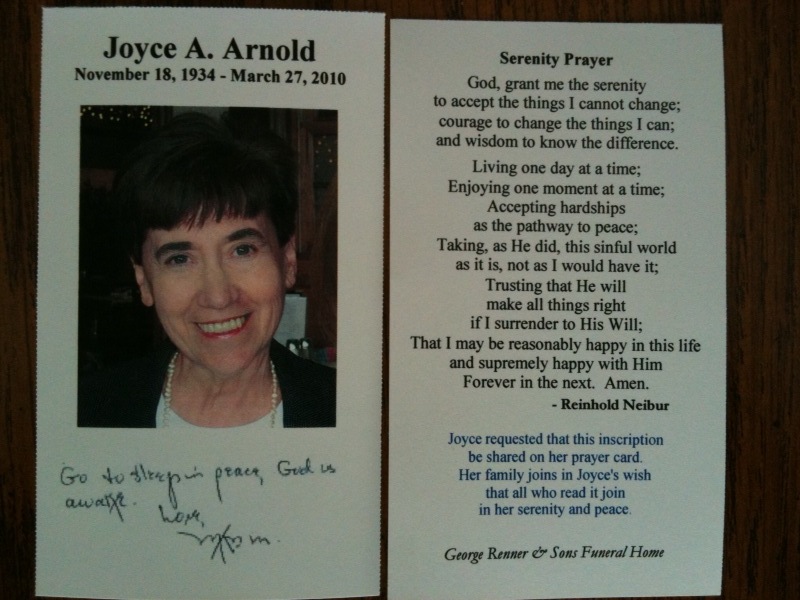 Joyce A. Arnold
November 18, 1934 - March 27, 2010
Go to sleep in peace, God is
awake.
Love,
Mom
Serenity Prayer
God, grant me the serenity
to accept the things I cannot change;
courage to change the things I can;
and wisdom to know the difference.
Living one day at a time;
Enjoying one moment at a time;
Accepting hardships
as the pathway to peace;
Taking, as He did, this sinful world
as it is, not as I would have it;
Trusting that He will
make all things right
if I surrender to His Will;
That I may be reasonably happy in this life
and supremely happy with Him
Forever in the next. Amen.
- Reinhold Neibur
Joyce requested that this inscription
be shared on her prayer card.
Her family joins in Joyce's wish
that all who read it join
in her serenity and peace.
George Renner & Sons Funeral Home